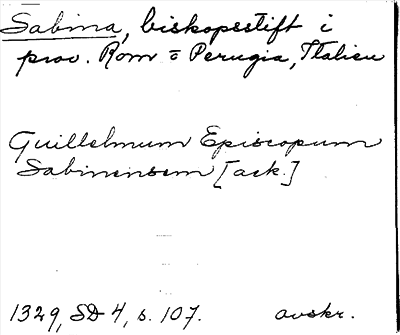 Sabina, biskopsstift i
prov. Rom o Perugia, Italien
Guillelmum Episcopum
Sabinensem [ack.]
1329, SD 4, s. 107. avskr.